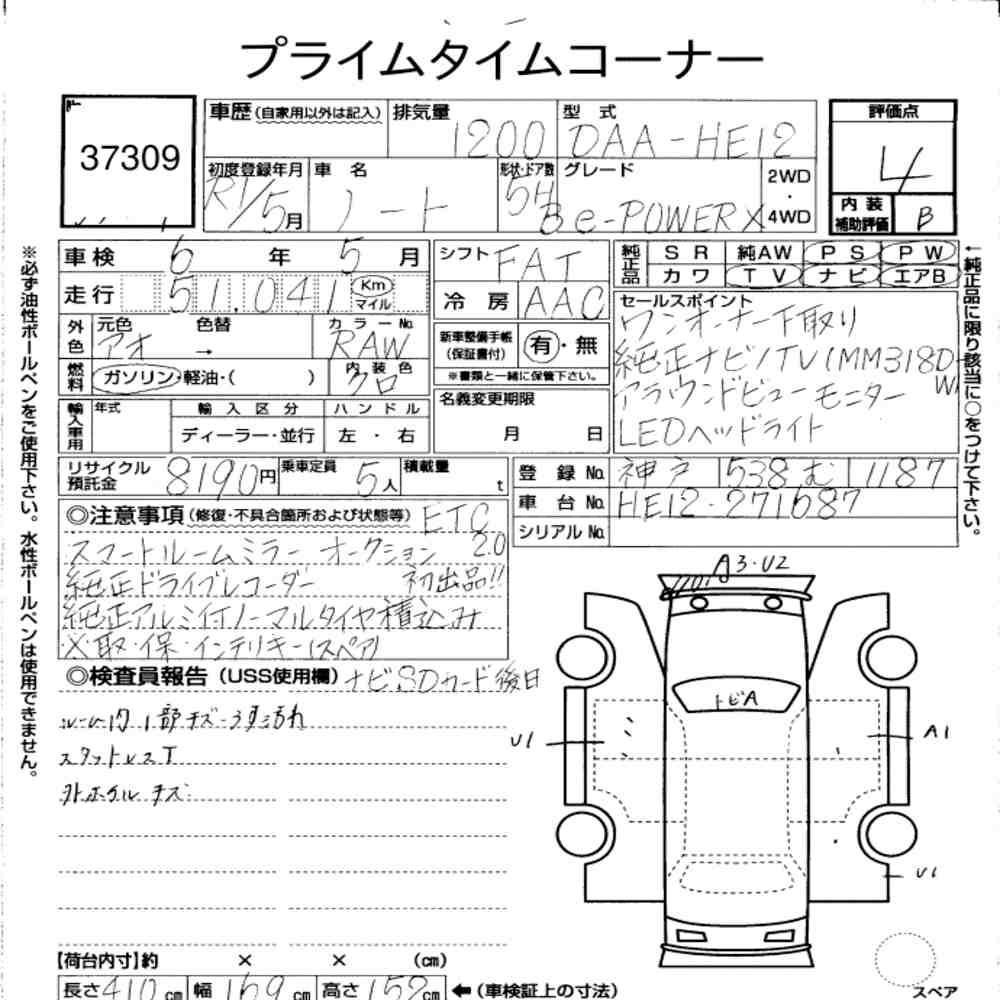 プライムタイムコーナー
37309
車歴(自家用以外は記入) 排気量 1200 型式 DAA-HE12
評価点 4
初度登録年月 R1/5月 車名 ノート 形状・ドア数 5H グレード e-POWER X 2WD・4WD
内装補助評価 B
車検 6年 5月 シフト FAT
純正品 SR 純AW PS PW
カワ TV ナビ エアB
走行 51,041 Km マイル 冷房 AAC
セールスポイント
ワンオーナー下取り
純正ナビ/TV(MM318D-W)
アラウンドビューモニター
LEDヘッドライト
外色 元色 アオ 色替 → カラーNo. RAW
新車整備手帳(保証書付) 有・無
※書類と一緒に保管下さい。
燃料 ガソリン・軽油・( ) 内装色 クロ
名義変更期限 月 日
輸入車用 年式 輸入区分 ハンドル
ディーラー・並行 左・右
リサイクル預託金 8190円 乗車定員 5人 積載量 t
登録No. 神戸 538 む 1187
車台No. HE12-271687
シリアルNo.
◎注意事項(修復・不具合箇所および状態等) ETC 2.0
スマートルームミラー オークション
純正ドライブレコーダー 初出品!!
純正アルミ付ノーマルタイヤ積込み
※取・保・インテリキー(スペア)
◎検査員報告(USS使用欄) ナビSDカード後日
ルーム内 1部キズ・うす汚れ
スタットレスT
外ホイル キズ
A3・U2
トビA
U1
A1
U1
【荷台内寸】約 × × (cm)
長さ 410cm 幅 169cm 高さ 152cm ←(車検証上の寸法)
スペア
※必ず油性ボールペンをご使用下さい。水性ボールペンは使用できません。
←純正品に限り該当に○をつけて下さい。